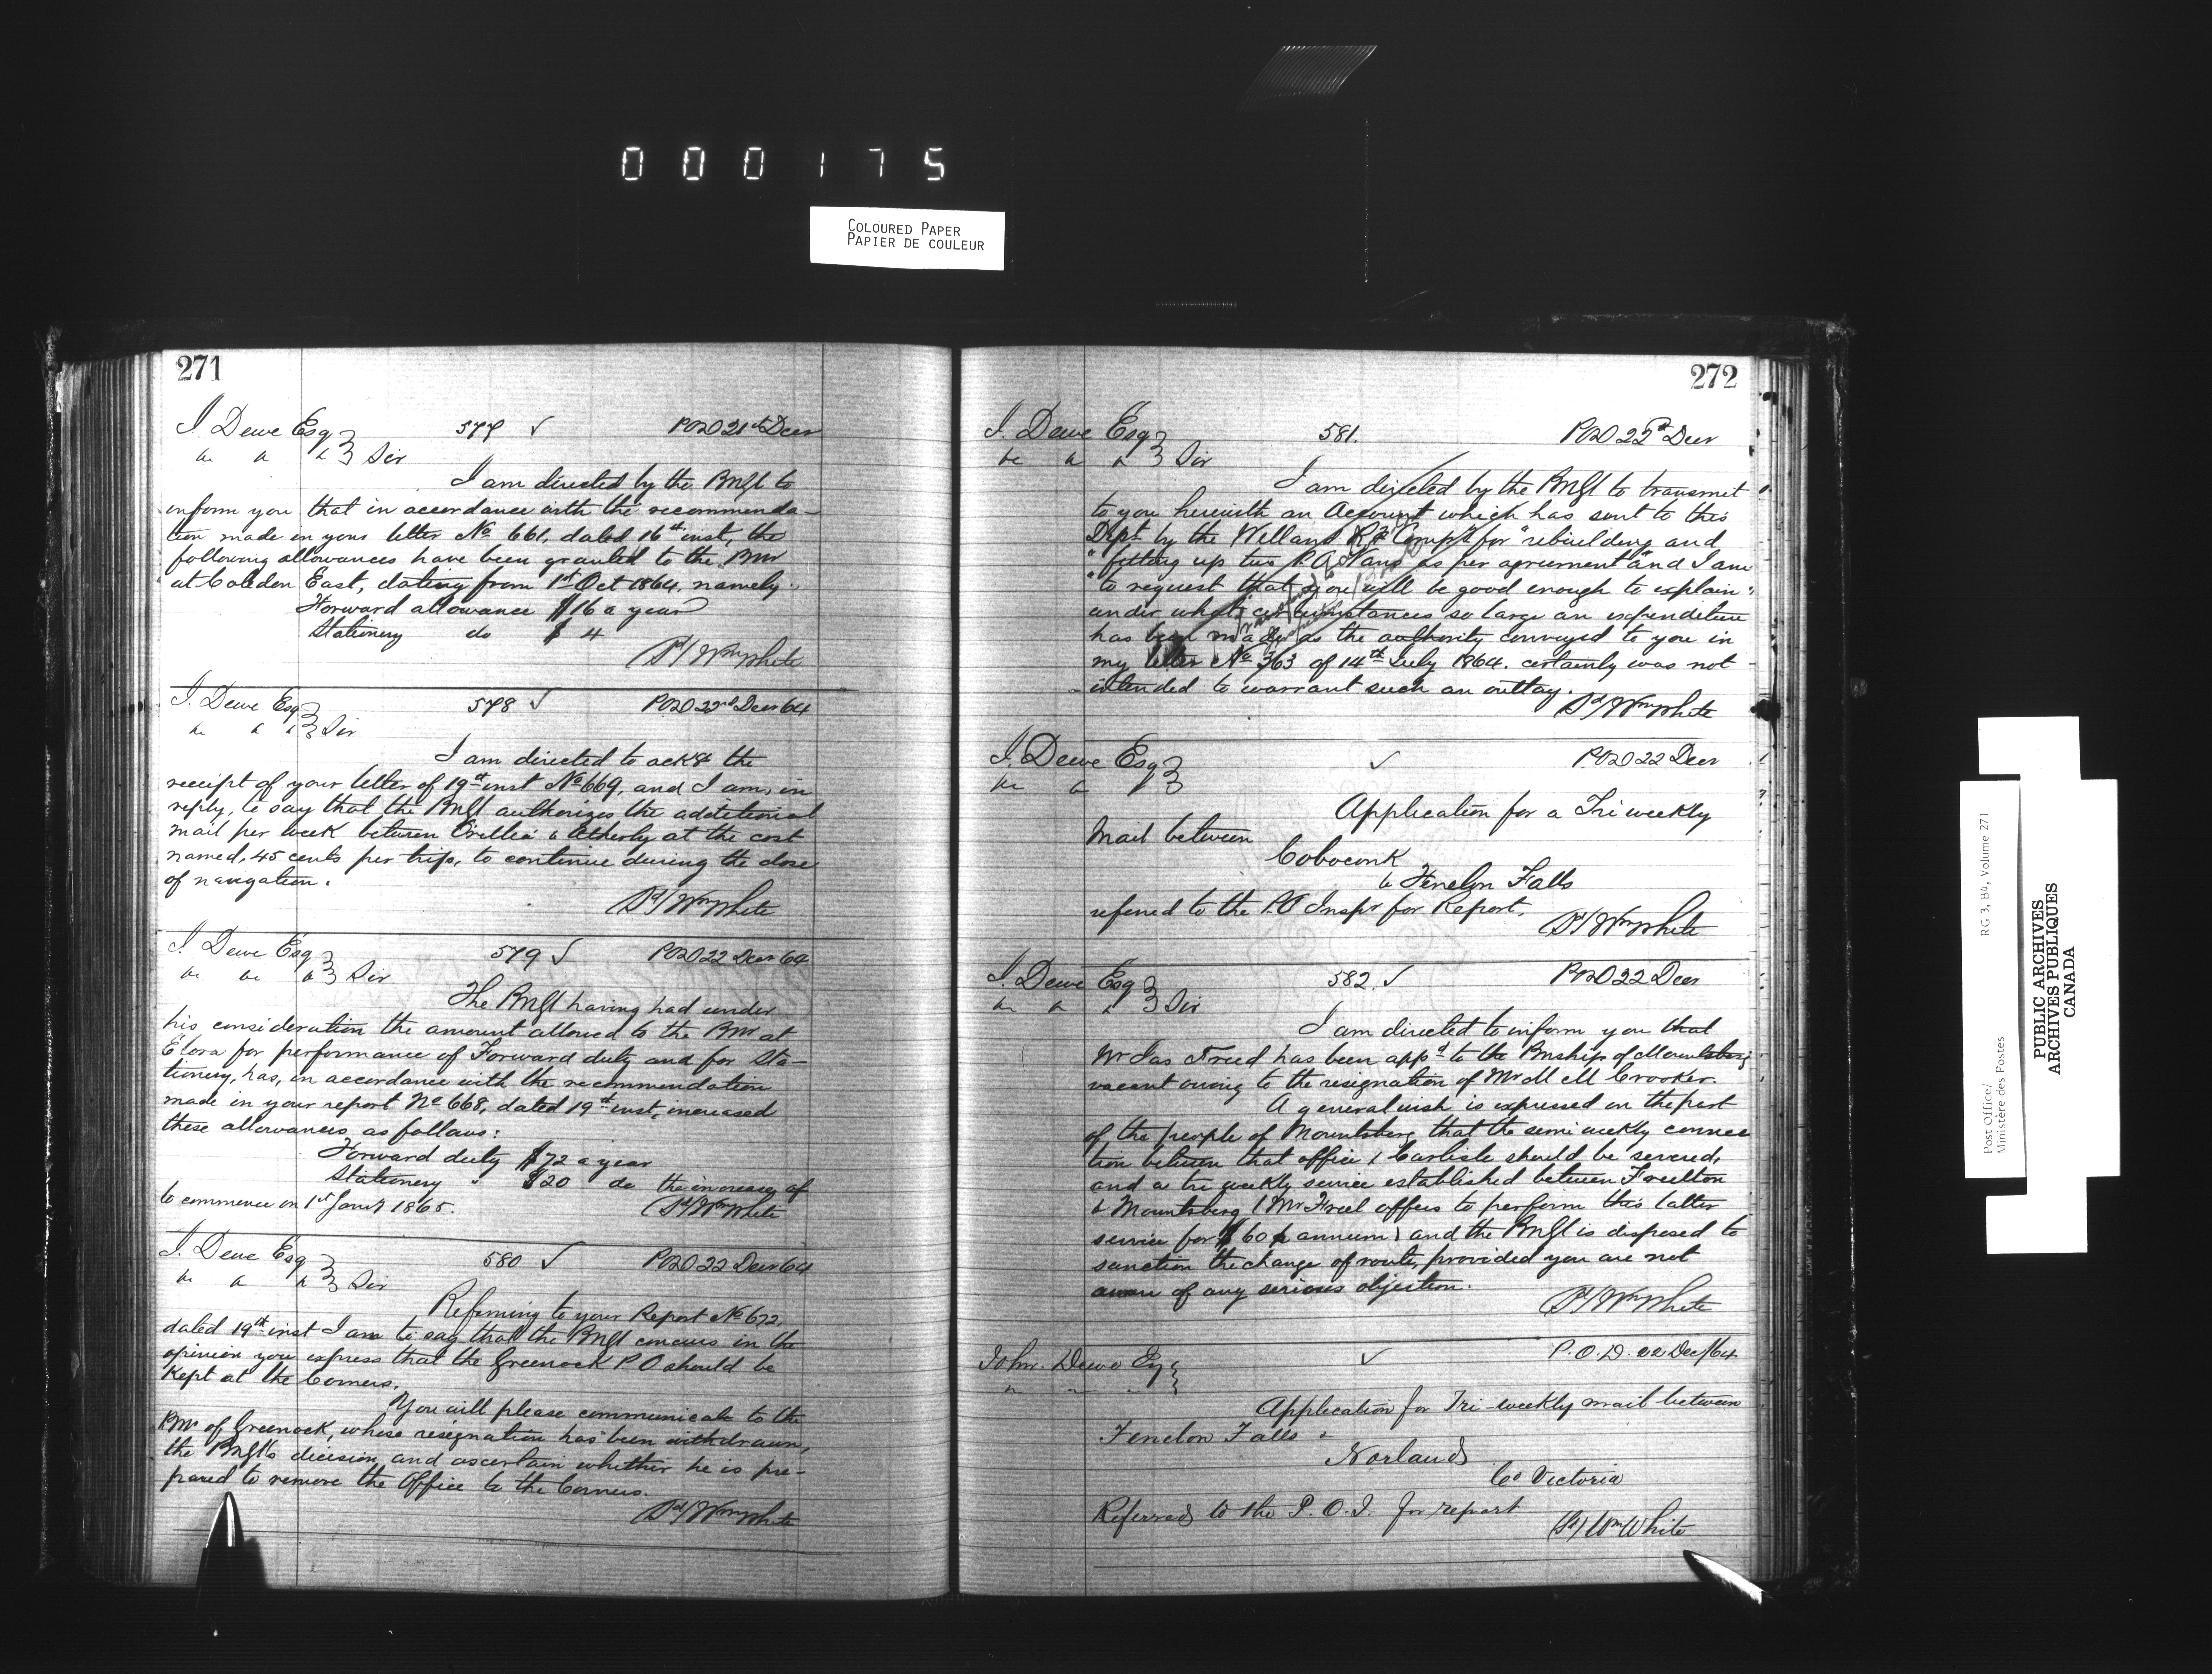 000175
COLOURED PAPER
PAPIER DE COULEUR
271
J. Dewe Esq 577 ✓ POD 21st Decr
&c &c &c } Sir
I am directed by the PMGl to
inform you that in accordance with the recommenda-
tion made in your letter No 661, dated 16th inst, the
following allowances have been granted to the PMr
at Caledon East, dating from 1st Oct 1864, namely.
Forward allowance $16 a year
Stationery do $4
Sd/ Wm White
J. Dewe Esq 578 ✓ POD 22nd Decr 64
&c &c &c } Sir
I am directed to ackge the
receipt of your letter of 19th inst No 669, and I am, in
reply, to say that the PMGl authorizes the additional
mail per week between Orillia & Atherly at the cost
named, 45 cents per trip, to continue during the close
of navigation.
Sd/ Wm White
J. Dewe Esq 579 ✓ POD 22 Decr 64
&c &c &c } Sir
The PMGl having had under
his consideration the amount allowed to the PMr at
Elora for performance of Forward duty and for Sta-
tionery, has, in accordance with the recommendation
made in your report No 668, dated 19th inst, increased
these allowances as follows:
Forward duty $72 a year
Stationery " $20 do the increases of
to commence on 1st Jany 1865.
Sd/ Wm White
J. Dewe Esq 580 ✓ POD 22 Decr 64
&c &c &c } Sir
Referring to your Report No 672,
dated 19th inst I am to say that the PMGl concurs in the
opinion you express that the Greenock P O should be
Kept at the Corners.
You will please communicate to the
PMr of Greenock, whose resignation has been withdrawn,
the PMGl's decision, and ascertain whether he is pre-
pared to remove the Office to the Corners.
Sd/ Wm White
272
J. Dewe Esq 581. POD 22nd Decr
&c &c &c } Sir
I am directed by the PMGl to transmit
to you herewith an Account which has sent to this
Dept by the Welland RR Compy for "rebuilding and
"fitting up two P.O. Vans as per agreement" and I am
"to request that you will be good enough to explain
under what circumstances so large an expenditure
has been made, as the authority conveyed to you in
my letter No 363 of 14th July 1864. certainly was not
intended to warrant such an outlay.
Sd/ Wm White
J. Dewe Esq ✓ POD 22 Decr
&c &c
Application for a Tri weekly
Mail between
Coboconk
& Fenelon Falls
referred to the P.O Inspr for Report.
Sd/ Wm White
J. Dewe Esq 582. ✓ POD 22 Decr
&c &c &c } Sir
I am directed to inform you that
Mr Jas Freed has been appd to the PMship of Mountsberg
vacant owing to the resignation of Mr M M Crooker.
A general wish is expressed on the part
of the people of Mountsberg that the semi weekly connec
tion between that office & Carlisle should be severed,
and a tri weekly service established between Freelton
& Mountsberg (Mr Freel offers to perform this latter
service for $60 p annum) and the PMGl is disposed to
sanction the change of route, provided you are not
aware of any serious objection.
Sd/ Wm White
John. Dewe Esq ✓ P.O.D. 22 Dec/64
Application for Tri-weekly mail between
Fenelon Falls &
Norland
Co Victoria
Referred to the P.O.I. for report
(Sd) Wm White
Post Office/
Ministère des Postes
RG 3, B4, Volume 271
PUBLIC ARCHIVES
ARCHIVES PUBLIQUES
CANADA